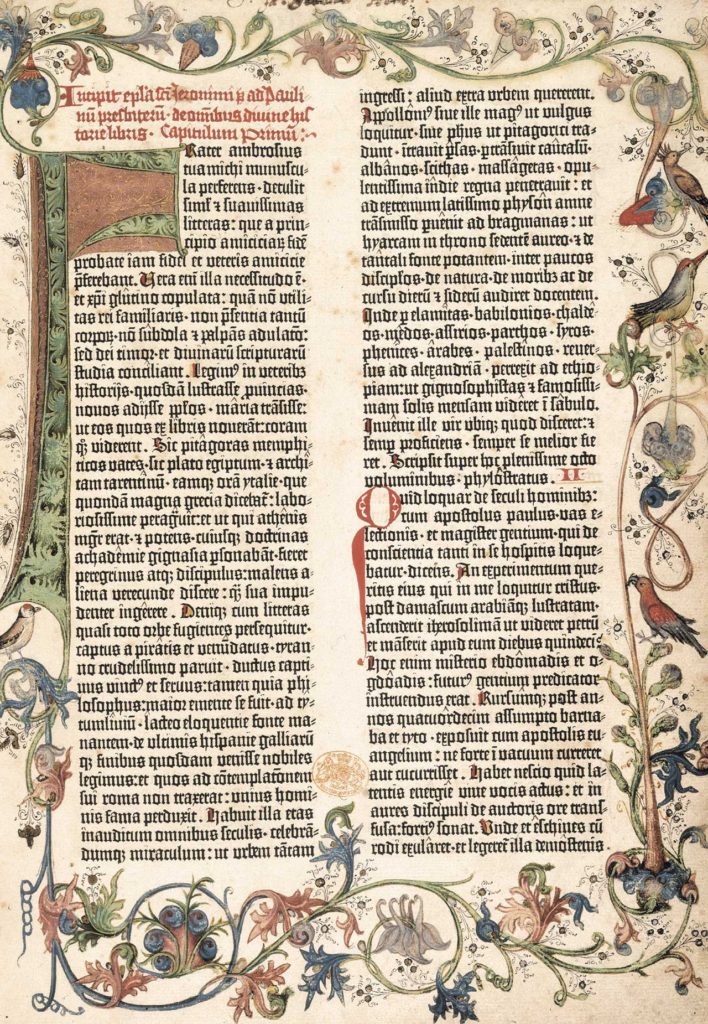 Incipit epl̄a sctī Jeronimi p̄ ad Pauli-
nū presbiterū · de om̄ibus divine his-
torie libris · Capitulum Primū:-
Frater ambrosius
tua michi munuscu-
la perferens · detulit
simł ⁊ suauissimas
litteras: que a prin-
cipio amiciciaꝝ fidē
probate iam fidei et veteris amicicie
p̄ferebant. Vera em̄ illa necessitudo ē ·
et xp̄i glutino copulata: quā nō vtili-
tas rei familiaris · non p̄sentia tantū
corpoꝝ · nō subdola ⁊ palpās adulatō:
sed dei timor · et divinarū scripturarū
studia conciliant. Legimꝰ in veteribꝫ
historijs · quosdā lustrasse ꝓuincias ·
nouos adijsse pp̄los · maria trāsisse:
ut eos quos ex libris nouerāt: coram
qꝫ viderent. Sic pitagoras memphi-
ticos vates · sic plato egiptum · ⁊ archi-
tam tarentinū · eamqꝫ orā ytalie · que
quondā magna grecia dicebat̄: labo-
riosissime peragᵘit: et ut qui athēnis
mgr̄ erat · ⁊ potens · cuiusqꝫ doctrinas
achademie gignasia ꝑsonabāt · fieret
peregrinus atqꝫ discipulus: malens a-
liena verecunde discere: qꝫ sua impu-
denter ingerere. Deniqꝫ cum litteras
quasi toto orbe fugientes persequitur ·
captus a piratis et venūdatus · tyran-
no crudelissimo paruit · ductus capti-
uus vinctꝰ et seruus: tamen quia phi-
losophus: maior emente se fuit · ad ty-
tumliuiū · lacteo eloquentie fonte ma-
nantem · de vltimis hispanie galliarū
qꝫ finibus quosdam venisse nobiles
legimus: et quos ad cōtemplatōnem
sui roma non traxerat: vnius homi-
nis fama perduxit. Habuit illa etas
inauditum omnibus seculis · celebrā-
dumqꝫ miraculum: ut vrbem tātam
ingressi: aliud extra vrbem quererent.
Apollōniꝰ siue ille magꝰ ut vulgus
loquitur · siue ph̄us ut pitagorici tra-
dunt · ītrauit ꝑsas · ꝑtrāsiuit caucasū ·
albānos · scithas · massagetas · opu-
lentissima indie regna penetrauit: et
ad extremum latissimo physōn amne
trāsmisso ꝑuēit ad bragmanas: ut
hyarcam in throno sedentē aureo · ⁊ de
tantali fonte potantem · inter paucos
discipl̄os · de natura · de moribꝫ ac de
cursu dierū ⁊ siderū audiret docentem.
Inde ꝑ elamitas · babilonios · chaldē-
os · mēdos · assirios · parthos · syros ·
phenices · ārabes · palestinos · reuer-
sus ad alexandriā · perrexit ad ethio-
piam: ut gignosophistas ⁊ famosissi-
mam solis mensam videret ī sabulo.
Inuēnit ille vir vbiqꝫ quod disceret: ⁊
semꝑ proficiens · semper se melior fie-
ret. Scripsit super hoc plenissime octo
voluminibus · phylōstratus. II
Quid loquar de seculi hominibꝫ:
cum apostolus paulus · vas e-
lectionis · et magister gentium · qui de
consciencia tanti in se hospitis loque-
batur · dicens. An experimentum que-
ritis eius qui in me loquitur cristus ·
post damascum arabiāqꝫ lustratam ·
ascenderit iherosolimā ut videret petrū
et māserit apud eum diebus quindecī.
Hoc enim misterio ebdōmadis et o-
gdōadis: futurꝰ gentium predicator
instruendus erat. Rursūmqꝫ post an-
nos quatuōrdecim assumpto barna-
ba et tyto · exposuit cum apostolis eu-
angelium: ne forte ī vacuum curreret
aut cucurrisset. Habet nescio quid la-
tentis energie viue vocis actus: et in
aures discipuli de auctoris ore trans-
fusa: fortiꝰ sonat. Vnde et ēschines cū
rodi exularet · et legeret̄ illa demostenis